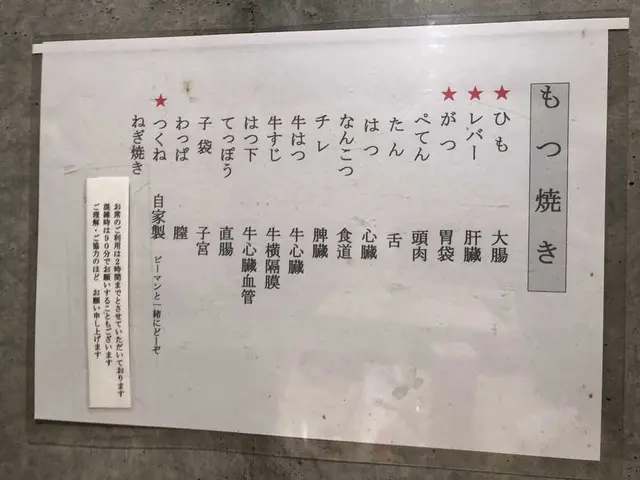 もつ焼き
★ひも 大腸
★レバー 肝臓
★がつ 胃袋
ぺてん 頭肉
たん 舌
はつ 心臓
なんこつ 食道
チレ 脾臓
牛はつ 牛心臓
牛すじ 牛横隔膜
はつ下 牛心臓血管
てっぽう 直腸
子袋 子宮
わっぱ 膣
★つくね 自家製 ピーマンと一緒にどーぞ
ねぎ焼き
お席のご利用は2時間までとさせていただいております
混雑時は90分でお願いすることもございます
ご理解・ご協力のほど、お願い申し上げます